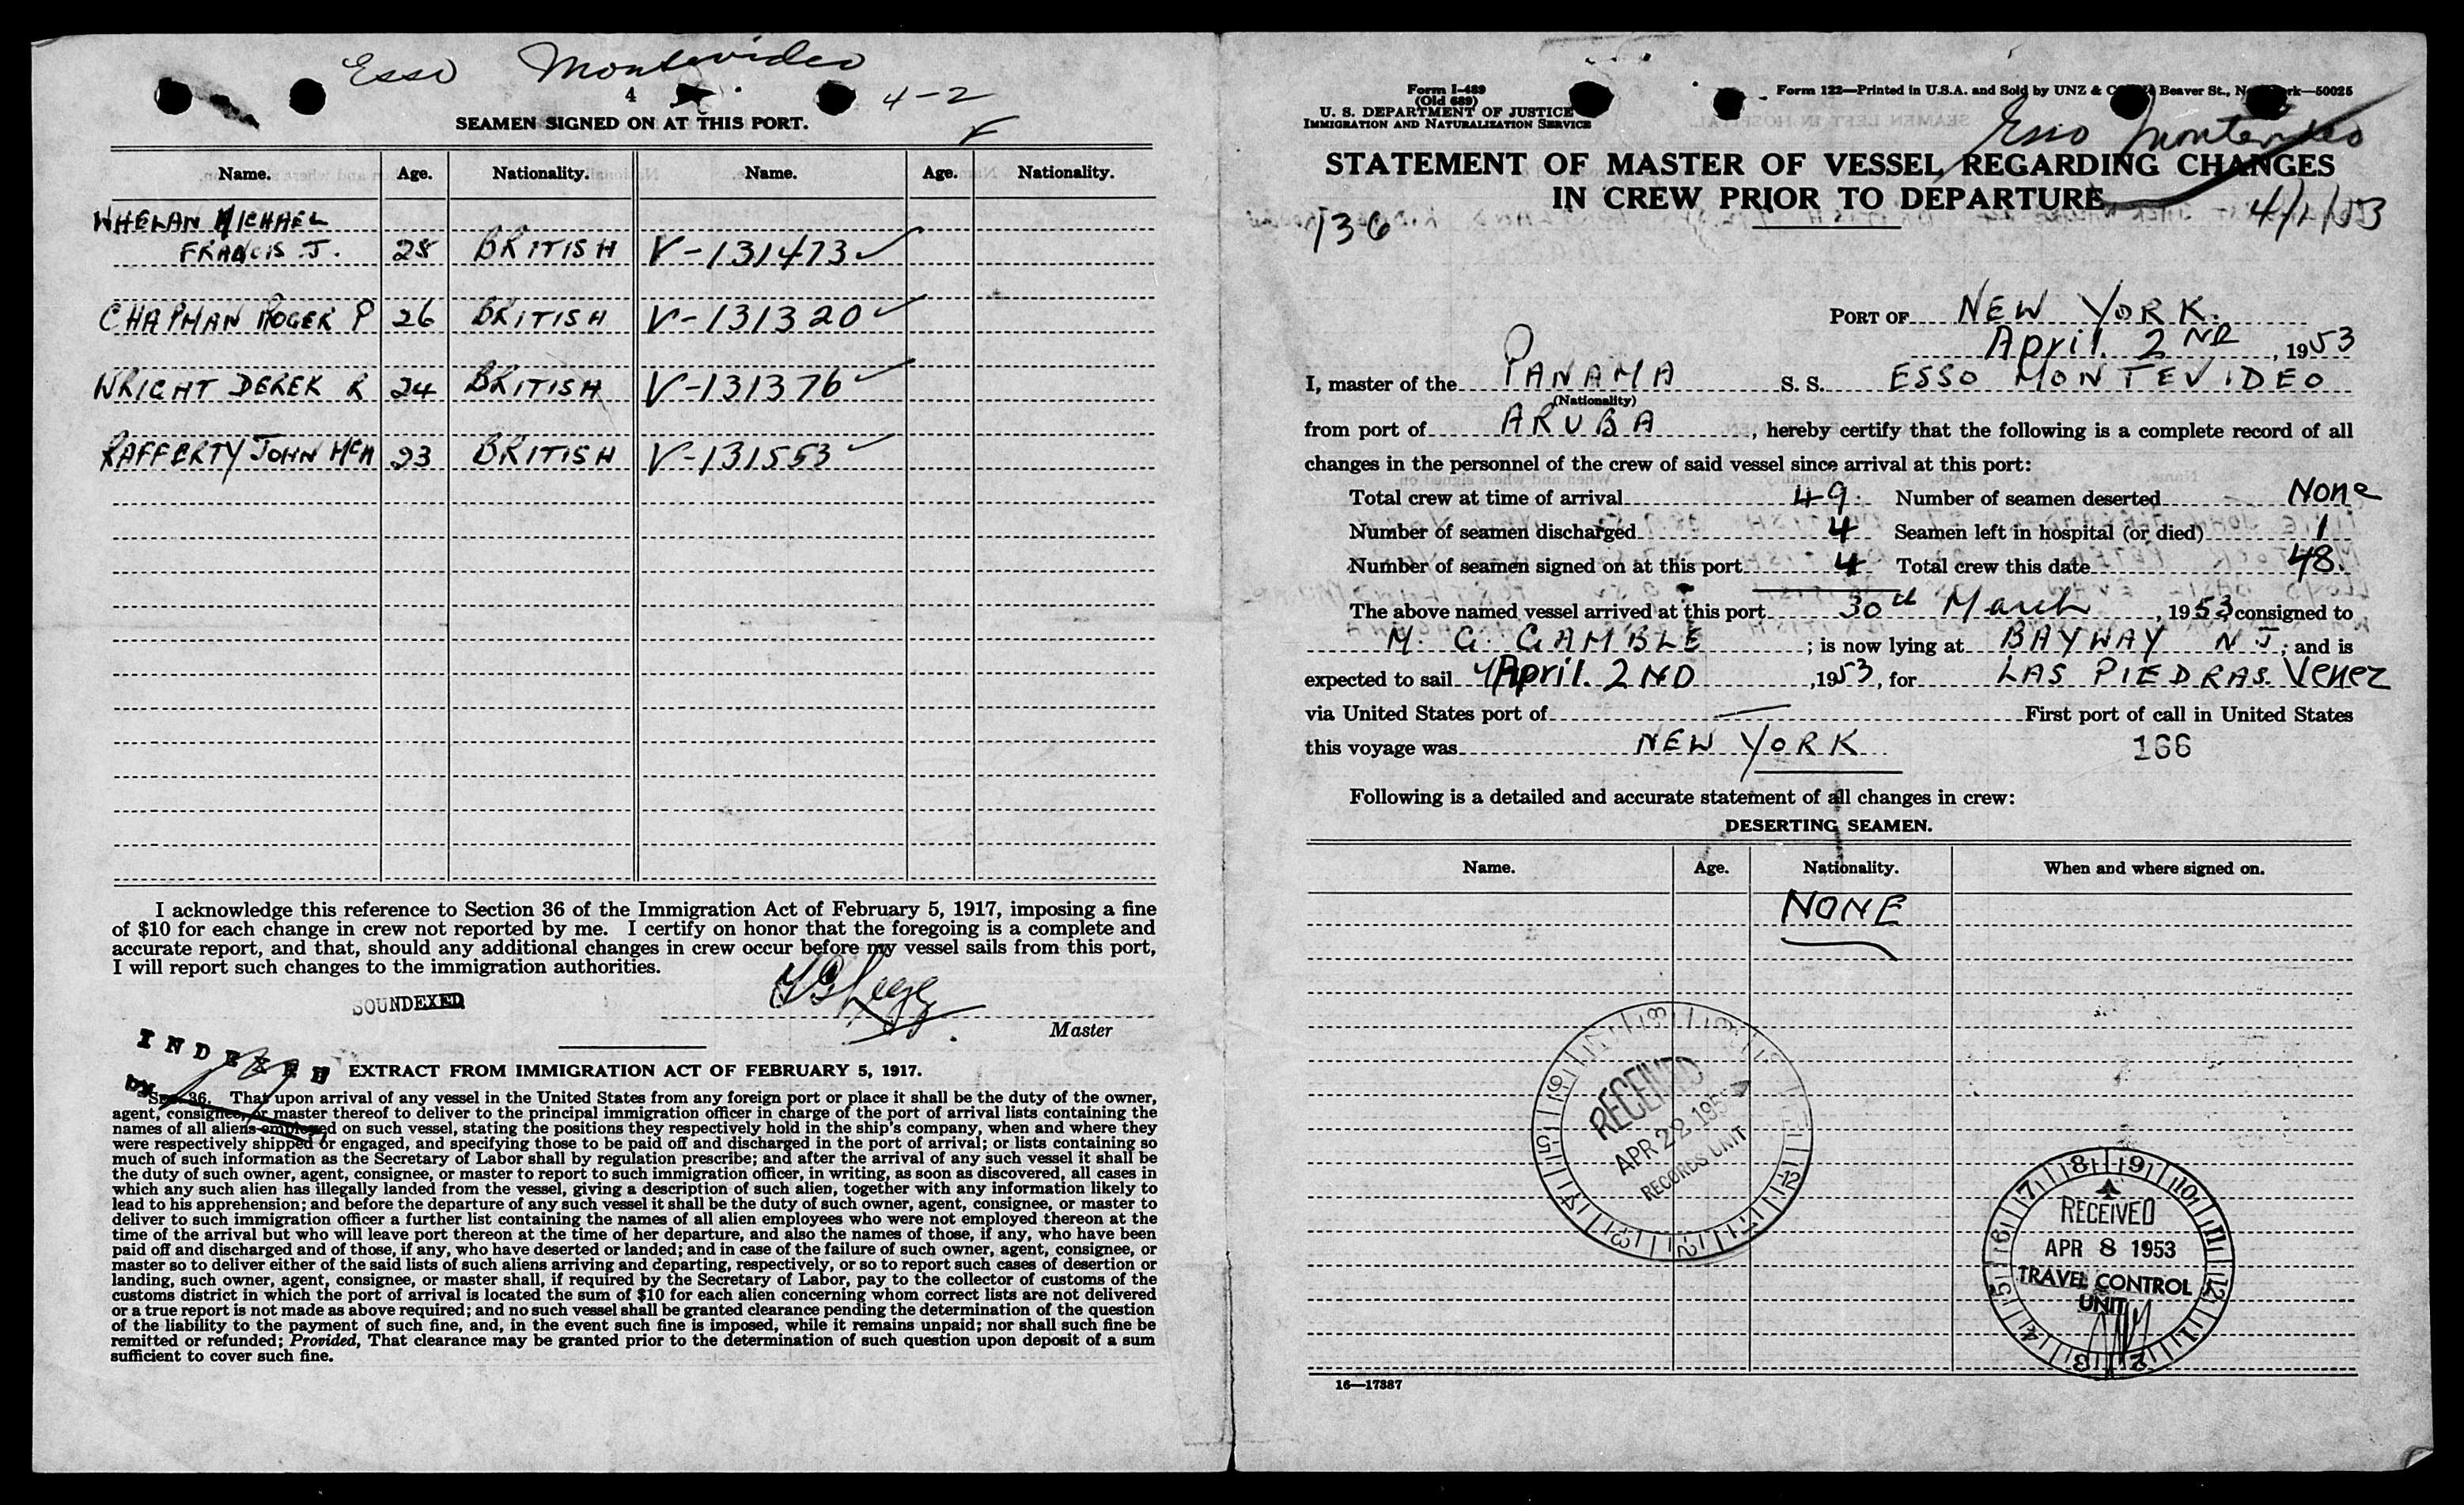 Esso Montevideo
4
4-2
F
SEAMEN SIGNED ON AT THIS PORT.
Name. Age. Nationality. Name. Age. Nationality.
WHELAN MICHAEL
FRANCIS J. 28 BRITISH V-131473 ✓
CHAPMAN ROGER P 26 BRITISH V-131320 ✓
WRIGHT DEREK R 24 BRITISH V-131376 ✓
RAFFERTY JOHN McN 23 BRITISH V-131553 ✓
I acknowledge this reference to Section 36 of the Immigration Act of February 5, 1917, imposing a fine
of $10 for each change in crew not reported by me. I certify on honor that the foregoing is a complete and
accurate report, and that, should any additional changes in crew occur before my vessel sails from this port,
I will report such changes to the immigration authorities.
SOUNDEXED
Master
INDEXED
by
EXTRACT FROM IMMIGRATION ACT OF FEBRUARY 5, 1917.
Sec. 36. That upon arrival of any vessel in the United States from any foreign port or place it shall be the duty of the owner,
agent, consignee, or master thereof to deliver to the principal immigration officer in charge of the port of arrival lists containing the
names of all aliens employed on such vessel, stating the positions they respectively hold in the ship's company, when and where they
were respectively shipped or engaged, and specifying those to be paid off and discharged in the port of arrival; or lists containing so
much of such information as the Secretary of Labor shall by regulation prescribe; and after the arrival of any such vessel it shall be
the duty of such owner, agent, consignee, or master to report to such immigration officer, in writing, as soon as discovered, all cases in
which any such alien has illegally landed from the vessel, giving a description of such alien, together with any information likely to
lead to his apprehension; and before the departure of any such vessel it shall be the duty of such owner, agent, consignee, or master to
deliver to such immigration officer a further list containing the names of all alien employees who were not employed thereon at the
time of the arrival but who will leave port thereon at the time of her departure, and also the names of those, if any, who have been
paid off and discharged and of those, if any, who have deserted or landed; and in case of the failure of such owner, agent, consignee, or
master so to deliver either of the said lists of such aliens arriving and departing, respectively, or so to report such cases of desertion or
landing, such owner, agent, consignee, or master shall, if required by the Secretary of Labor, pay to the collector of customs of the
customs district in which the port of arrival is located the sum of $10 for each alien concerning whom correct lists are not delivered
or a true report is not made as above required; and no such vessel shall be granted clearance pending the determination of the question
of the liability to the payment of such fine, and, in the event such fine is imposed, while it remains unpaid; nor shall such fine be
remitted or refunded; Provided, That clearance may be granted prior to the determination of such question upon deposit of a sum
sufficient to cover such fine.
Form I-489
(Old 689)
U. S. DEPARTMENT OF JUSTICE
IMMIGRATION AND NATURALIZATION SERVICE
Form 122—Printed in U.S.A. and Sold by UNZ & Beaver St., 50025
Esso Montevideo
STATEMENT OF MASTER OF VESSEL REGARDING CHANGES
IN CREW PRIOR TO DEPARTURE
136
4/1/53
PORT OF NEW YORK.
April. 2ND, 1953
I, master of the PANAMA S. S. ESSO MONTEVIDEO
(Nationality)
from port of ARUBA, hereby certify that the following is a complete record of all
changes in the personnel of the crew of said vessel since arrival at this port:
Total crew at time of arrival 49. Number of seamen deserted None
Number of seamen discharged 4 Seamen left in hospital (or died) 1
Number of seamen signed on at this port 4 Total crew this date 48.
The above named vessel arrived at this port 30th March, 1953 consigned to
M. G. GAMBLE; is now lying at BAYWAY N J; and is
expected to sail April. 2ND, 1953, for LAS PIEDRAS. Venez
via United States port of — First port of call in United States
this voyage was NEW YORK
166
Following is a detailed and accurate statement of all changes in crew:
DESERTING SEAMEN.
Name. Age. Nationality. When and where signed on.
NONE
RECEIVED
APR 22 195
RECORDS UNIT
RECEIVED
APR 8 1953
TRAVEL CONTROL
UNIT
16—17387